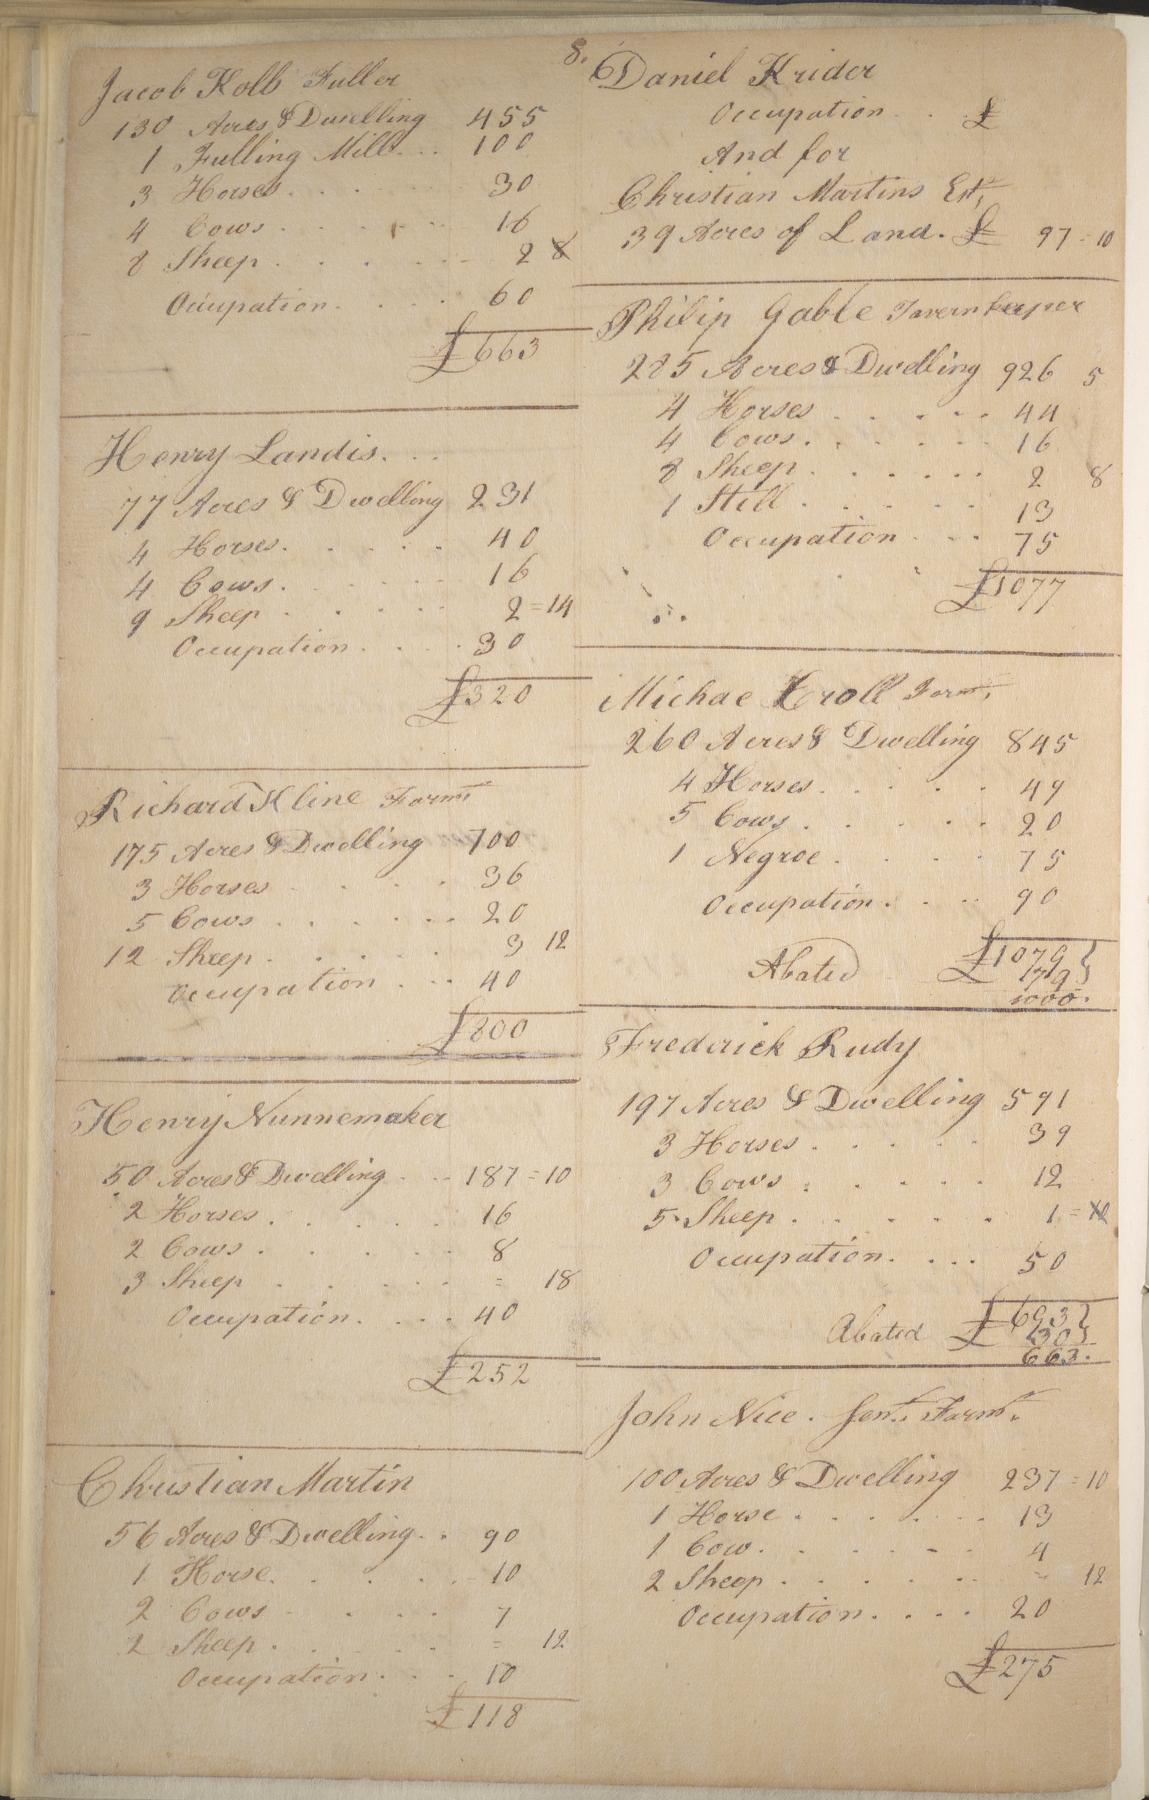 8.
Jacob Kolb Fuller
130 Acres & Dwelling 455
1 Fulling Mill... 100
3 Horses..... 30
4 Cows..... 16
8 Sheep..... 2 8
Occupation.... 60
£663
Henry Landis...
77 Acres & Dwelling 231
4 Horses..... 40
4 Cows..... 16
9 Sheep..... 2=14
Occupation.... 30
£320
Richard Kline Farmr
175 Acres & Dwelling 700
3 Horses.... 36
5 Cows..... 20
12 Sheep..... 3 12
Occupation... 40
£800
Henry Nunnemaker
50 Acres & Dwelling... 187=10
2 Horses..... 16
2 Cows..... 8
3 Sheep..... = 18
Occupation.... 40
£252
Christian Martin
56 Acres & Dwelling.. 90
1 Horse..... 10
2 Cows.... 7
2 Sheep..... = 12
Occupation... 10
£118
Daniel Krider
Occupation.. £
And for
Christian Martins Est,
39 Acres of Land. £ 97=10
Philip Gable Tavernkeeper
285 Acres & Dwelling 926 5
4 Horses..... 44
4 Cows...... 16
8 Sheep...... 2 8
1 Still..... 13
Occupation... 75
£1077
Michae Kroll Farmr
260 Acres & Dwelling 845
4 Horses..... 49
5 Cows..... 20
1 Negroe.... 75
Occupation.... 90
£1079
Abated 79
1000.
Frederick Rudy
197 Acres & Dwelling 591
3 Horses..... 39
3 Cows..... 12
5 Sheep..... 1=10
Occupation.... 50
£693
Abated £ 30
663.
John Nice. Senr. Farmr.
100 Acres & Dwelling 237=10
1 Horse...... 13
1 Cow..... 4
2 Sheep..... = 12
Occupation.... 20
£275